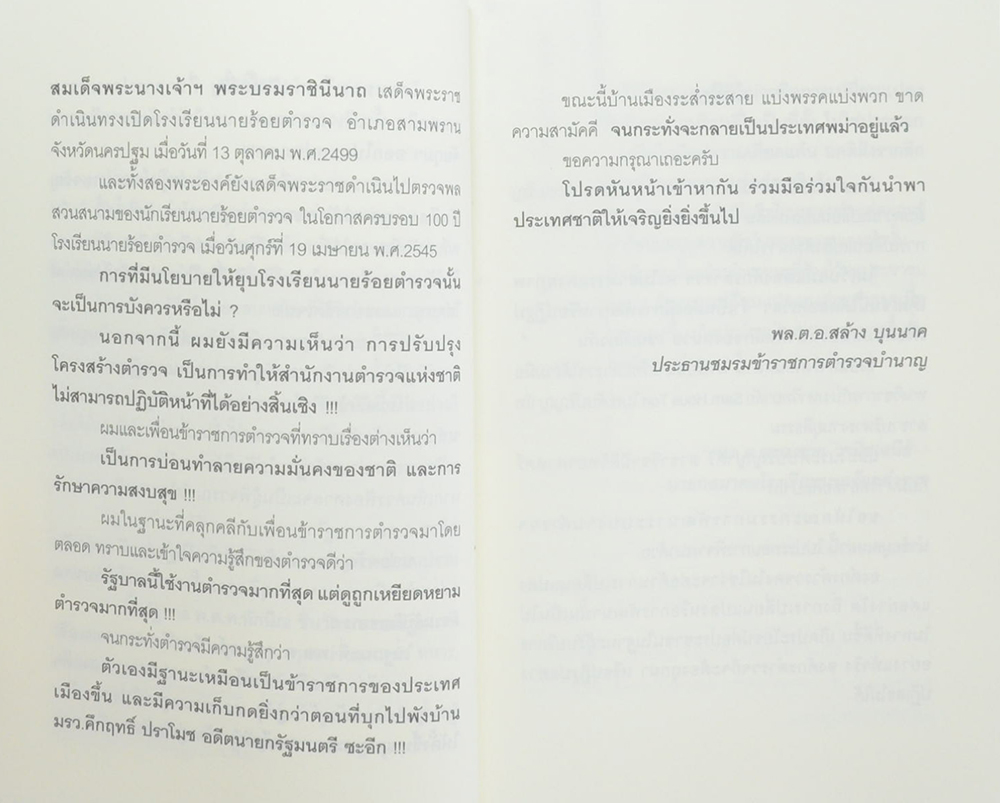 สมเด็จพระนางเจ้าฯ พระบรมราชินีนาถ เสด็จพระราช
ดำเนินทรงเปิดโรงเรียนนายร้อยตำรวจ อำเภอสามพราน
จังหวัดนครปฐม เมื่อวันที่ 13 ตุลาคม พ.ศ.2499
และทั้งสองพระองค์ยังเสด็จพระราชดำเนินไปตรวจพล
สวนสนามของนักเรียนนายร้อยตำรวจ ในโอกาสครบรอบ 100 ปี
โรงเรียนนายร้อยตำรวจ เมื่อวันศุกร์ที่ 19 เมษายน พ.ศ.2545
การที่มีนโยบายให้ยุบโรงเรียนนายร้อยตำรวจนั้น
จะเป็นการบังควรหรือไม่ ?
นอกจากนี้ ผมยังมีความเห็นว่า การปรับปรุง
โครงสร้างตำรวจ เป็นการทำให้สำนักงานตำรวจแห่งชาติ
ไม่สามารถปฏิบัติหน้าที่ได้อย่างสิ้นเชิง !!!
ผมและเพื่อนข้าราชการตำรวจที่ทราบเรื่องต่างเห็นว่า
เป็นการบ่อนทำลายความมั่นคงของชาติ และการ
รักษาความสงบสุข !!!
ผมในฐานะที่คลุกคลีกับเพื่อนข้าราชการตำรวจมาโดย
ตลอด ทราบและเข้าใจความรู้สึกของตำรวจดีว่า
รัฐบาลนี้ใช้งานตำรวจมากที่สุด แต่ดูถูกเหยียดหยาม
ตำรวจมากที่สุด !!!
จนกระทั่งตำรวจมีความรู้สึกว่า
ตัวเองมีฐานะเหมือนเป็นข้าราชการของประเทศ
เมืองขึ้น และมีความเก็บกดยิ่งกว่าตอนที่บุกไปพังบ้าน
มรว.คึกฤทธิ์ ปราโมช อดีตนายกรัฐมนตรี ซะอีก !!!
ขณะนี้บ้านเมืองระส่ำระสาย แบ่งพรรคแบ่งพวก ขาด
ความสามัคคี จนกระทั่งจะกลายเป็นประเทศพม่าอยู่แล้ว
ขอความกรุณาเถอะครับ
โปรดหันหน้าเข้าหากัน ร่วมมือร่วมใจกันนำพา
ประเทศชาติให้เจริญยิ่งยิ่งขึ้นไป
พล.ต.อ.สล้าง บุนนาค
ประธานชมรมข้าราชการตำรวจบำนาญ